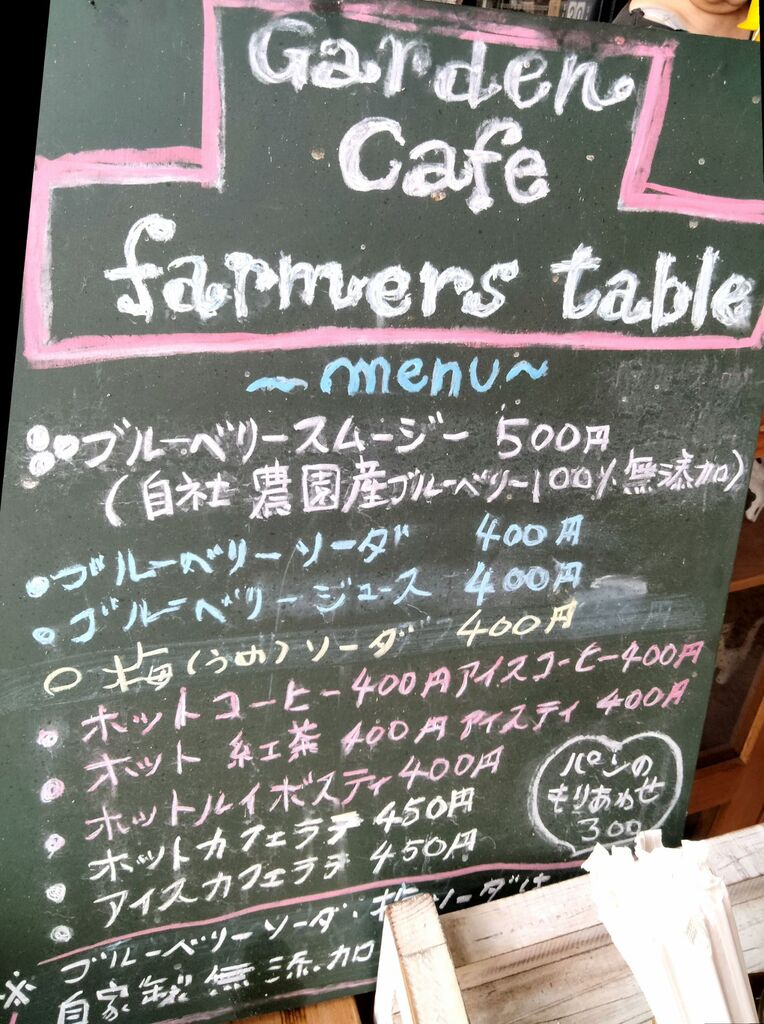 Garden
Cafe
farmers table
~menu~
ブルーベリースムージー 500円
(自社農園産ブルーベリー100%無添加)
・ブルーベリーソーダ 400円
・ブルーベリージュース 400円
○ 梅(うめ)ソーダ 400円
・ホットコーヒー400円アイスコーヒー400円
・ホット 紅茶 400円アイスティ 400円
・ホットルイボスティ 400円
・ホットカフェラテ 450円
・アイスカフェラテ 450円
パンの
もりあわせ
300
※ ブルーベリーソーダ・梅ソーダは
自家製無添加